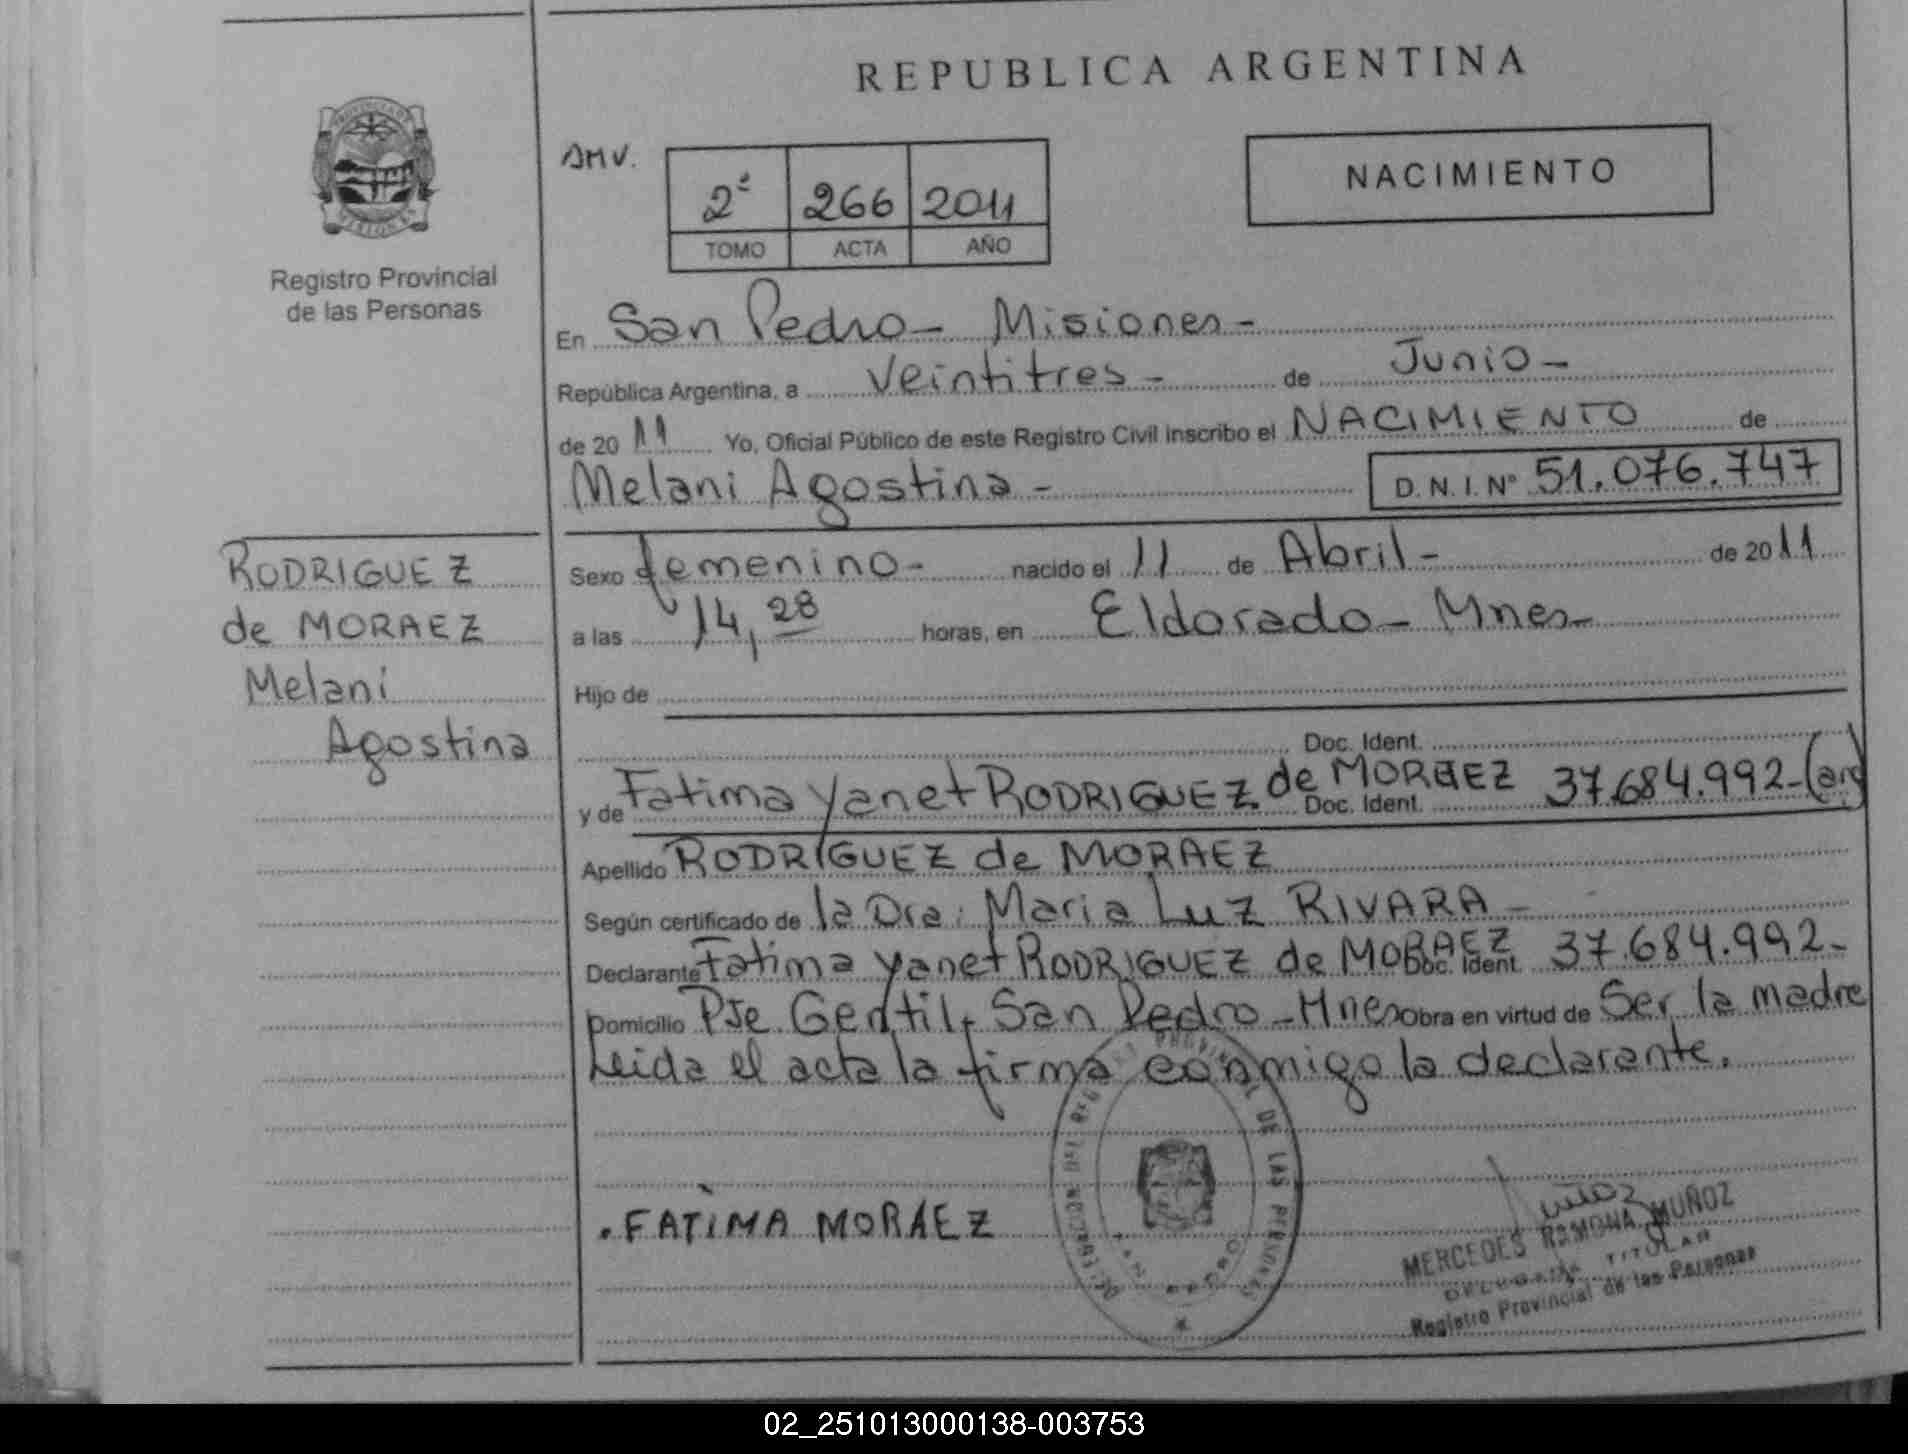 REPUBLICA ARGENTINA
PROVINCIA DE
MISIONES
Registro Provincial
de las Personas
AMV.
2ª 266 2011
TOMO ACTA AÑO
NACIMIENTO
En San Pedro - Misiones -
República Argentina, a Veintitres - de Junio -
de 20 11 Yo, Oficial Público de este Registro Civil inscribo el NACIMIENTO de
Melani Agostina - D.N.I. Nº 51.076.747
RODRIGUEZ
de MORAEZ
Melani
Agostina
Sexo femenino - nacido el 11 de Abril - de 20 11
a las 14,28 horas, en Eldorado - Mnes -
Hijo de
Doc. Ident.
y de Fatima Yanet RODRIGUEZ de MORAEZ Doc. Ident. 37.684.992-(arg)
Apellido RODRIGUEZ de MORAEZ
Según certificado de la Dra: Maria Luz RIVARA -
Declarante Fatima Yanet RODRIGUEZ de MORAEZ Doc. Ident. 37.684.992-
Domicilio Pje Gentil, San Pedro - Mnes obra en virtud de Ser la madre
Leida el acta la firma conmigo la declarante.
PROVINCIAL DE LAS PERSONAS
. FATIMA MORAEZ
MERCEDES RAMONA MUÑOZ
DELEGADA TITULAR
Registro Provincial de las Personas
02_251013000138-003753